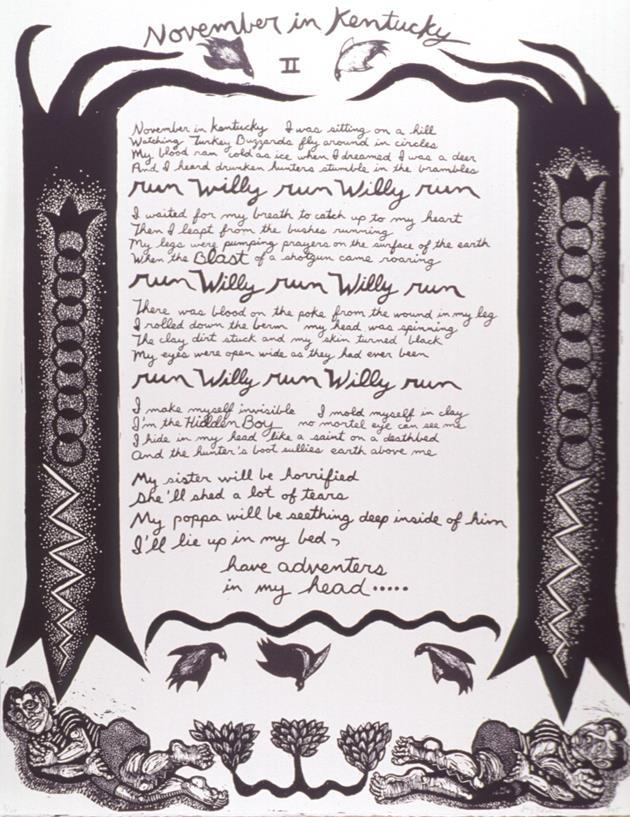 November in Kentucky
II
November in Kentucky I was sitting on a hill
Watching Turkey Buzzards fly around in circles
My blood ran cold as ice when I dreamed I was a deer
And I heard drunken hunters stumble in the brambles
run Willy run Willy run
I waited for my breath to catch up to my heart
Then I leapt from the bushes running
My legs were pumping prayers on the surface of the earth
When the BLAST of a shotgun came roaring
run Willy run Willy run
There was blood on the poke from the wound in my leg
I rolled down the berm my head was spinning
The clay dirt stuck and my skin turned black
My eyes were open wide as they had ever been
run Willy run Willy run
I make myself invisible I mold myself in clay
I'm the Hidden Boy no mortel eye can see me
I hide in my head like a saint on a deathbed
And the hunter's boot sullies earth above me
My sister will be horrified
She'll shed a lot of tears
My poppa will be seething deep inside of him
I'll lie up in my bed,
have adventers
in my head.....